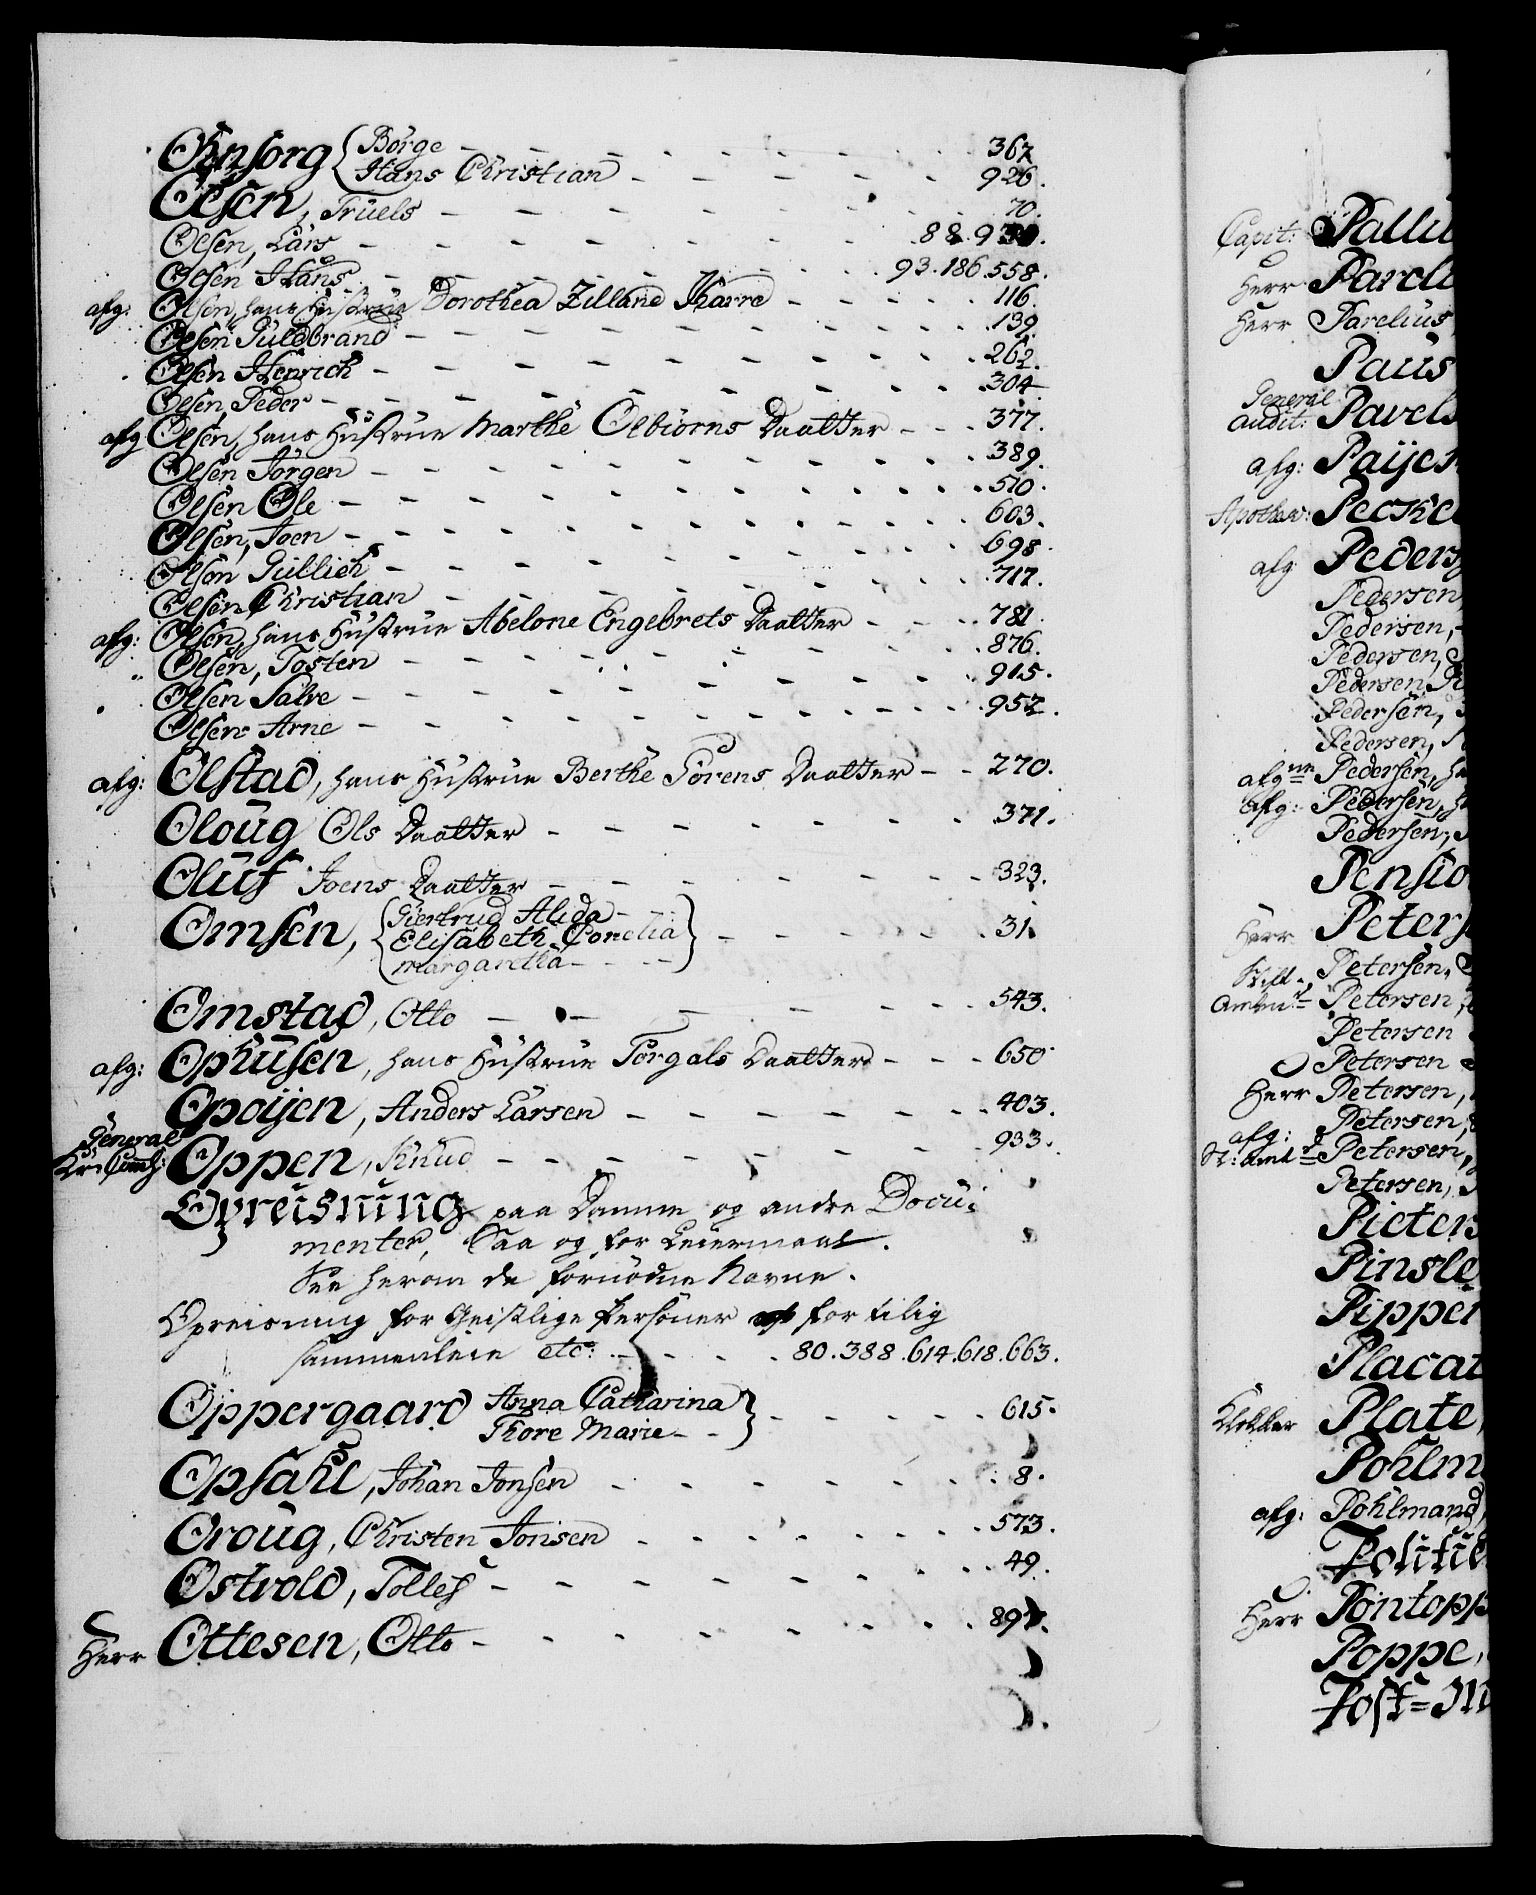 Ohnsorg { Börge - - - - - - - 367
Hans Christian - - - - - 926.
Olsen, Truels - - - - - - - 70.
Olsen, Lars - - - - - - - 88.930.
Olsen Hans - - - - - - - 93.186.558.
afg: Olsen, hans Hustrue Dorothea Zilland Kharre - - - - - 116.
Olsen Guldbrand - - - - - - - 139.
Olsen Henrich - - - - - - - 262.
Olsen, Peder - - - - - - - 304
afg Olsen, hans Hustrue Marthe Olbiörns Daatter - - - 377.
Olsen Jörgen - - - - - - - 389.
Olsen Ole - - - - - - - 510.
Olsen, Joen - - - - - - - 603.
Olson Gullich - - - - - - - 698.
Olsen Christian - - - - - - - 717.
afg: Olsen, hans Hustrue Abelone Engebrets Daatter - - - - 781.
Olsen, Tosten - - - - - - - 876.
Olsen Salve - - - - - - - 915.
Olsen Arne - - - - - - - 957.
afg: Olstad, hans Hustrue Berthe Sörens Daatter - - 270.
Oloug Ols Daatter - - - - - - - 371.
Oluf Joens Daatter - - - - - - - 323.
Omsen, { Giertrud Alida -
Elisabeth Conelia } - - - - - 31.
Margaretha - - - -
Omstad, Otto - - - - - - - 543.
afg: Ophusen, hans Hustrue Torgals Daatter - - - 650
Opoijen, Anders Larsen - - - - - - 403.
General
Kr: Comss: Oppen, Knud - - - - - - - 933.
Opreisning paa Domme og andre Docu-
menter, Saa og for Leiermaal.
See herom de fornödne Navne.
Opreisning for Geistlige Personer for tilig
sammenleie etc: - - - - 80.388.614.618.663.
Oppergaard Anna Catharina
Thore Marie - - } - - - - - 615.
Opsahl, Johan Jonsen - - - - - - 8.
Oroug, Christen Jonsen - - - - - - - 573.
Ostvold, Tollef - - - - - - - 49.
Herr Ottesen, Otto - - - - - - - 897.
Capit:
Herr
Herr Parelius,
Paus
General
Audit: Pavels
afg:
Apothev:
afg
Pedersen,
Pedersen,
Pedersen,
Pedersen,
Pedersen,
Pedersen,
afgne Pedersen,
afg: Pedersen,
Pedersen,
Pensio
Herr Peters
Stift- Petersen,
Amtm: Petersen,
Petersen
Petersen
Herr Petersen,
afg: Petersen,
St: Amtm: Petersen,
Petersen,
Pieters
Pinsle
Pipper
Placat
Klokker Plate,
Pohlm
afg: Pohlmand,
Politie
Herr Pontopp
Poppe,
Post=M